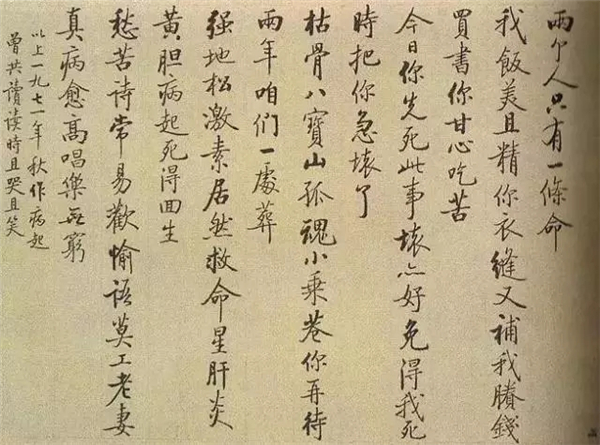 兩个人只有一條命
我飯美且精你衣縫又補我賸錢
買書你甘心吃苦
今日你先死此事壞亦好免得我死
時把你急壞了
枯骨八寶山孤魂小乘巷你再待
兩年咱們一處葬
强地松激素居然救命星肝炎
黄胆病起死得回生
愁苦诗常易歡愉語莫工老妻
真病愈高唱樂無窮
以上一九七一年秋作病起
曾共讀读時且哭且笑